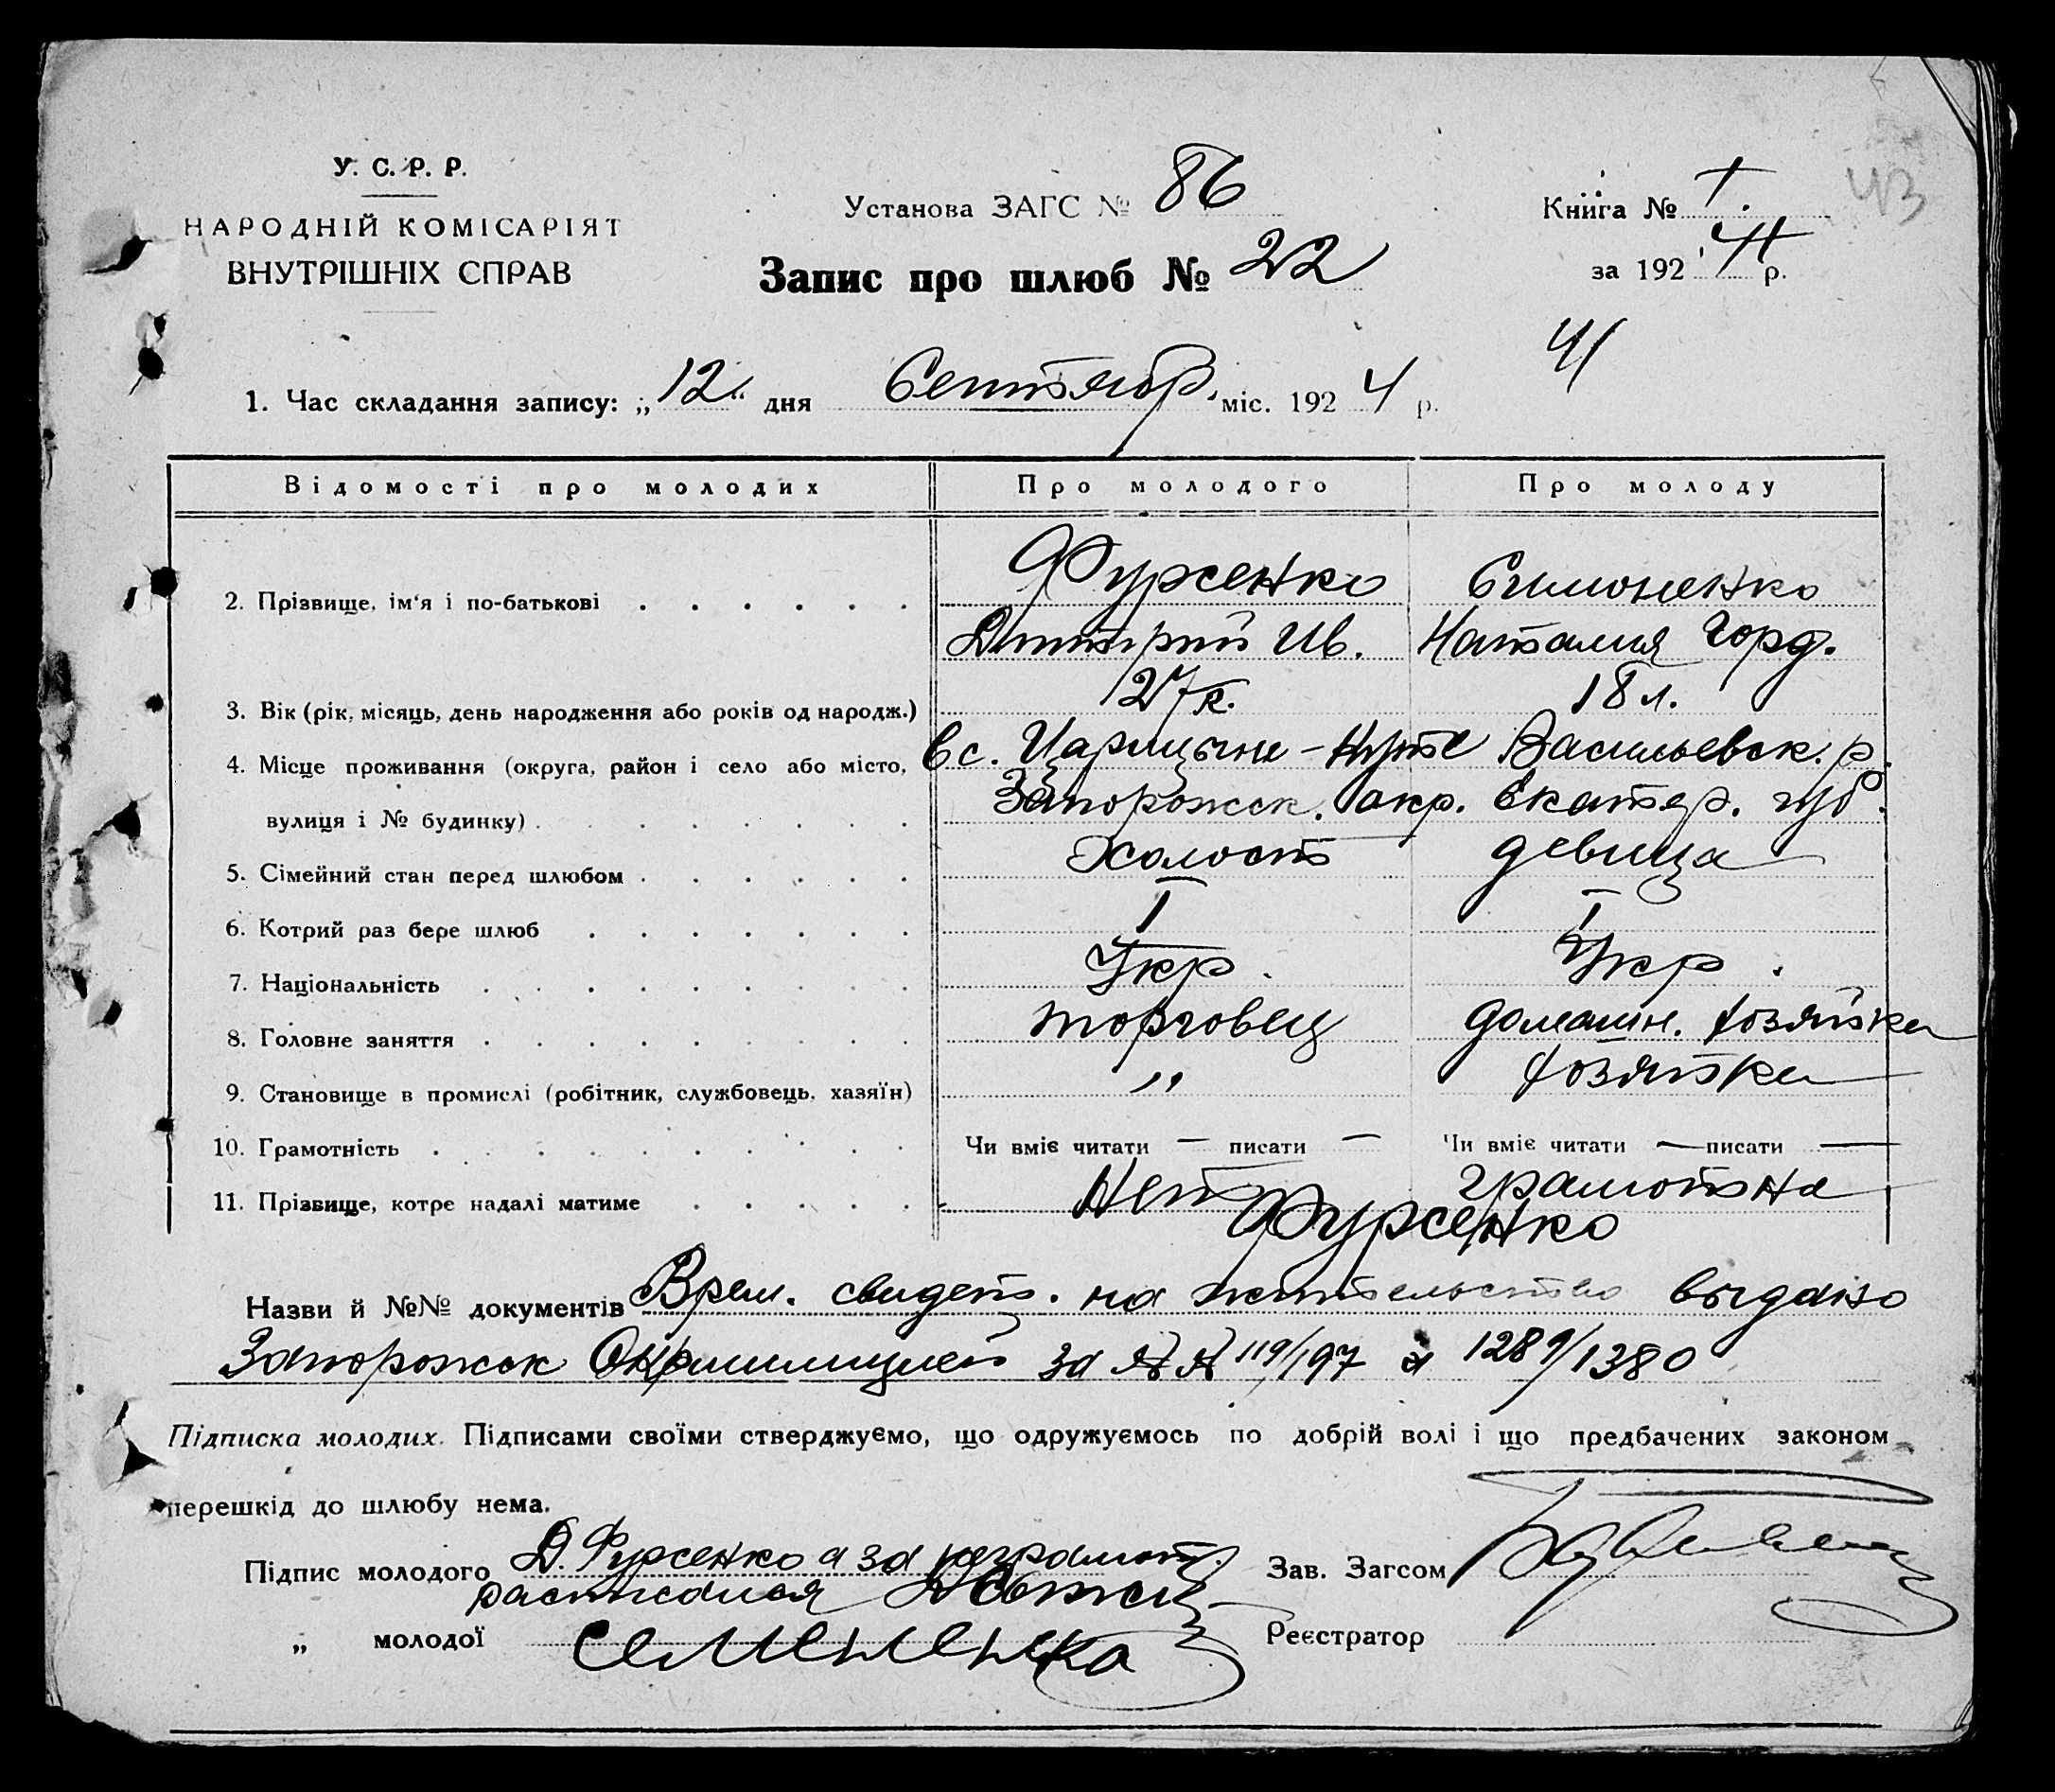 43
У. С. Р. Р.
НАРОДНІЙ КОМІСАРІЯТ
ВНУТРІШНІХ СПРАВ
Установа ЗАГС № 86
Запис про шлюб № 22
Книга № I.
за 1924 р.
41
1. Час складання запису: „12" дня Сентябр. міс. 1924 р.
Відомості про молодих Про молодого Про молоду
2. Прізвище, ім'я і по-батькові Фурсенко Симоненко
Дмитрий Ив. Наталия Горд.
3. Вік (рік, місяць, день народження або років од народж.) 27 л. 18 л.
4. Місце проживання (округа, район і село або місто, в с. Царицыно-Кут Васильевск. р.
вулиця і № будинку) Запорожск. окр. Екатер. губ.
5. Сімейний стан перед шлюбом Холост девица
6. Котрий раз бере шлюб I I
7. Національність Укр. Укр.
8. Головне заняття торговец домашн. хозяйка
9. Становище в промислі (робітник, службовець, хазяїн) " хозяйка
10. Грамотність Чи вміє читати — писати — Чи вміє читати — писати —
Нет грамотна
11. Прізвище, котре надалі матиме Фурсенко
Назви й №№ документів Врем. свидет. на жительство выдано
Запорожск Окрмилицией за №№ 119/197 и 1289/1380
Підписка молодих. Підписами своїми стверджуємо, що одружуємось по добрій волі і що предбачених законом
перешкід до шлюбу нема.
Підпис молодого Д. Фурсенко а за неграмотн.
Зав. Загсом
„ молодої
Реєстратор